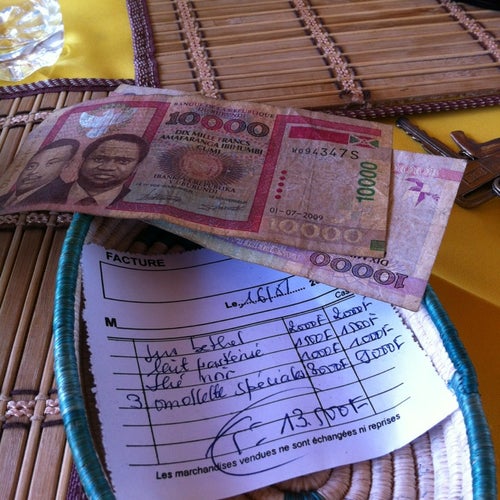 BANQUE DE LA REPUBLIQUE
10000
DIX MILLE FRANCS
AMAFARANGA IBIHUMBI
CUMI
IBANKI YA REPUBLIKA
Y'UBURUNDI
W094347S
10000
01-07-2009
10000
10000
FACTURE
Le,
M
Jus 2000F 2000F
lait 1000F
thé noir 1000F 1000F
3 omellette spéciale
T = 13.000F
Les marchandises vendues ne sont échangées ni reprises